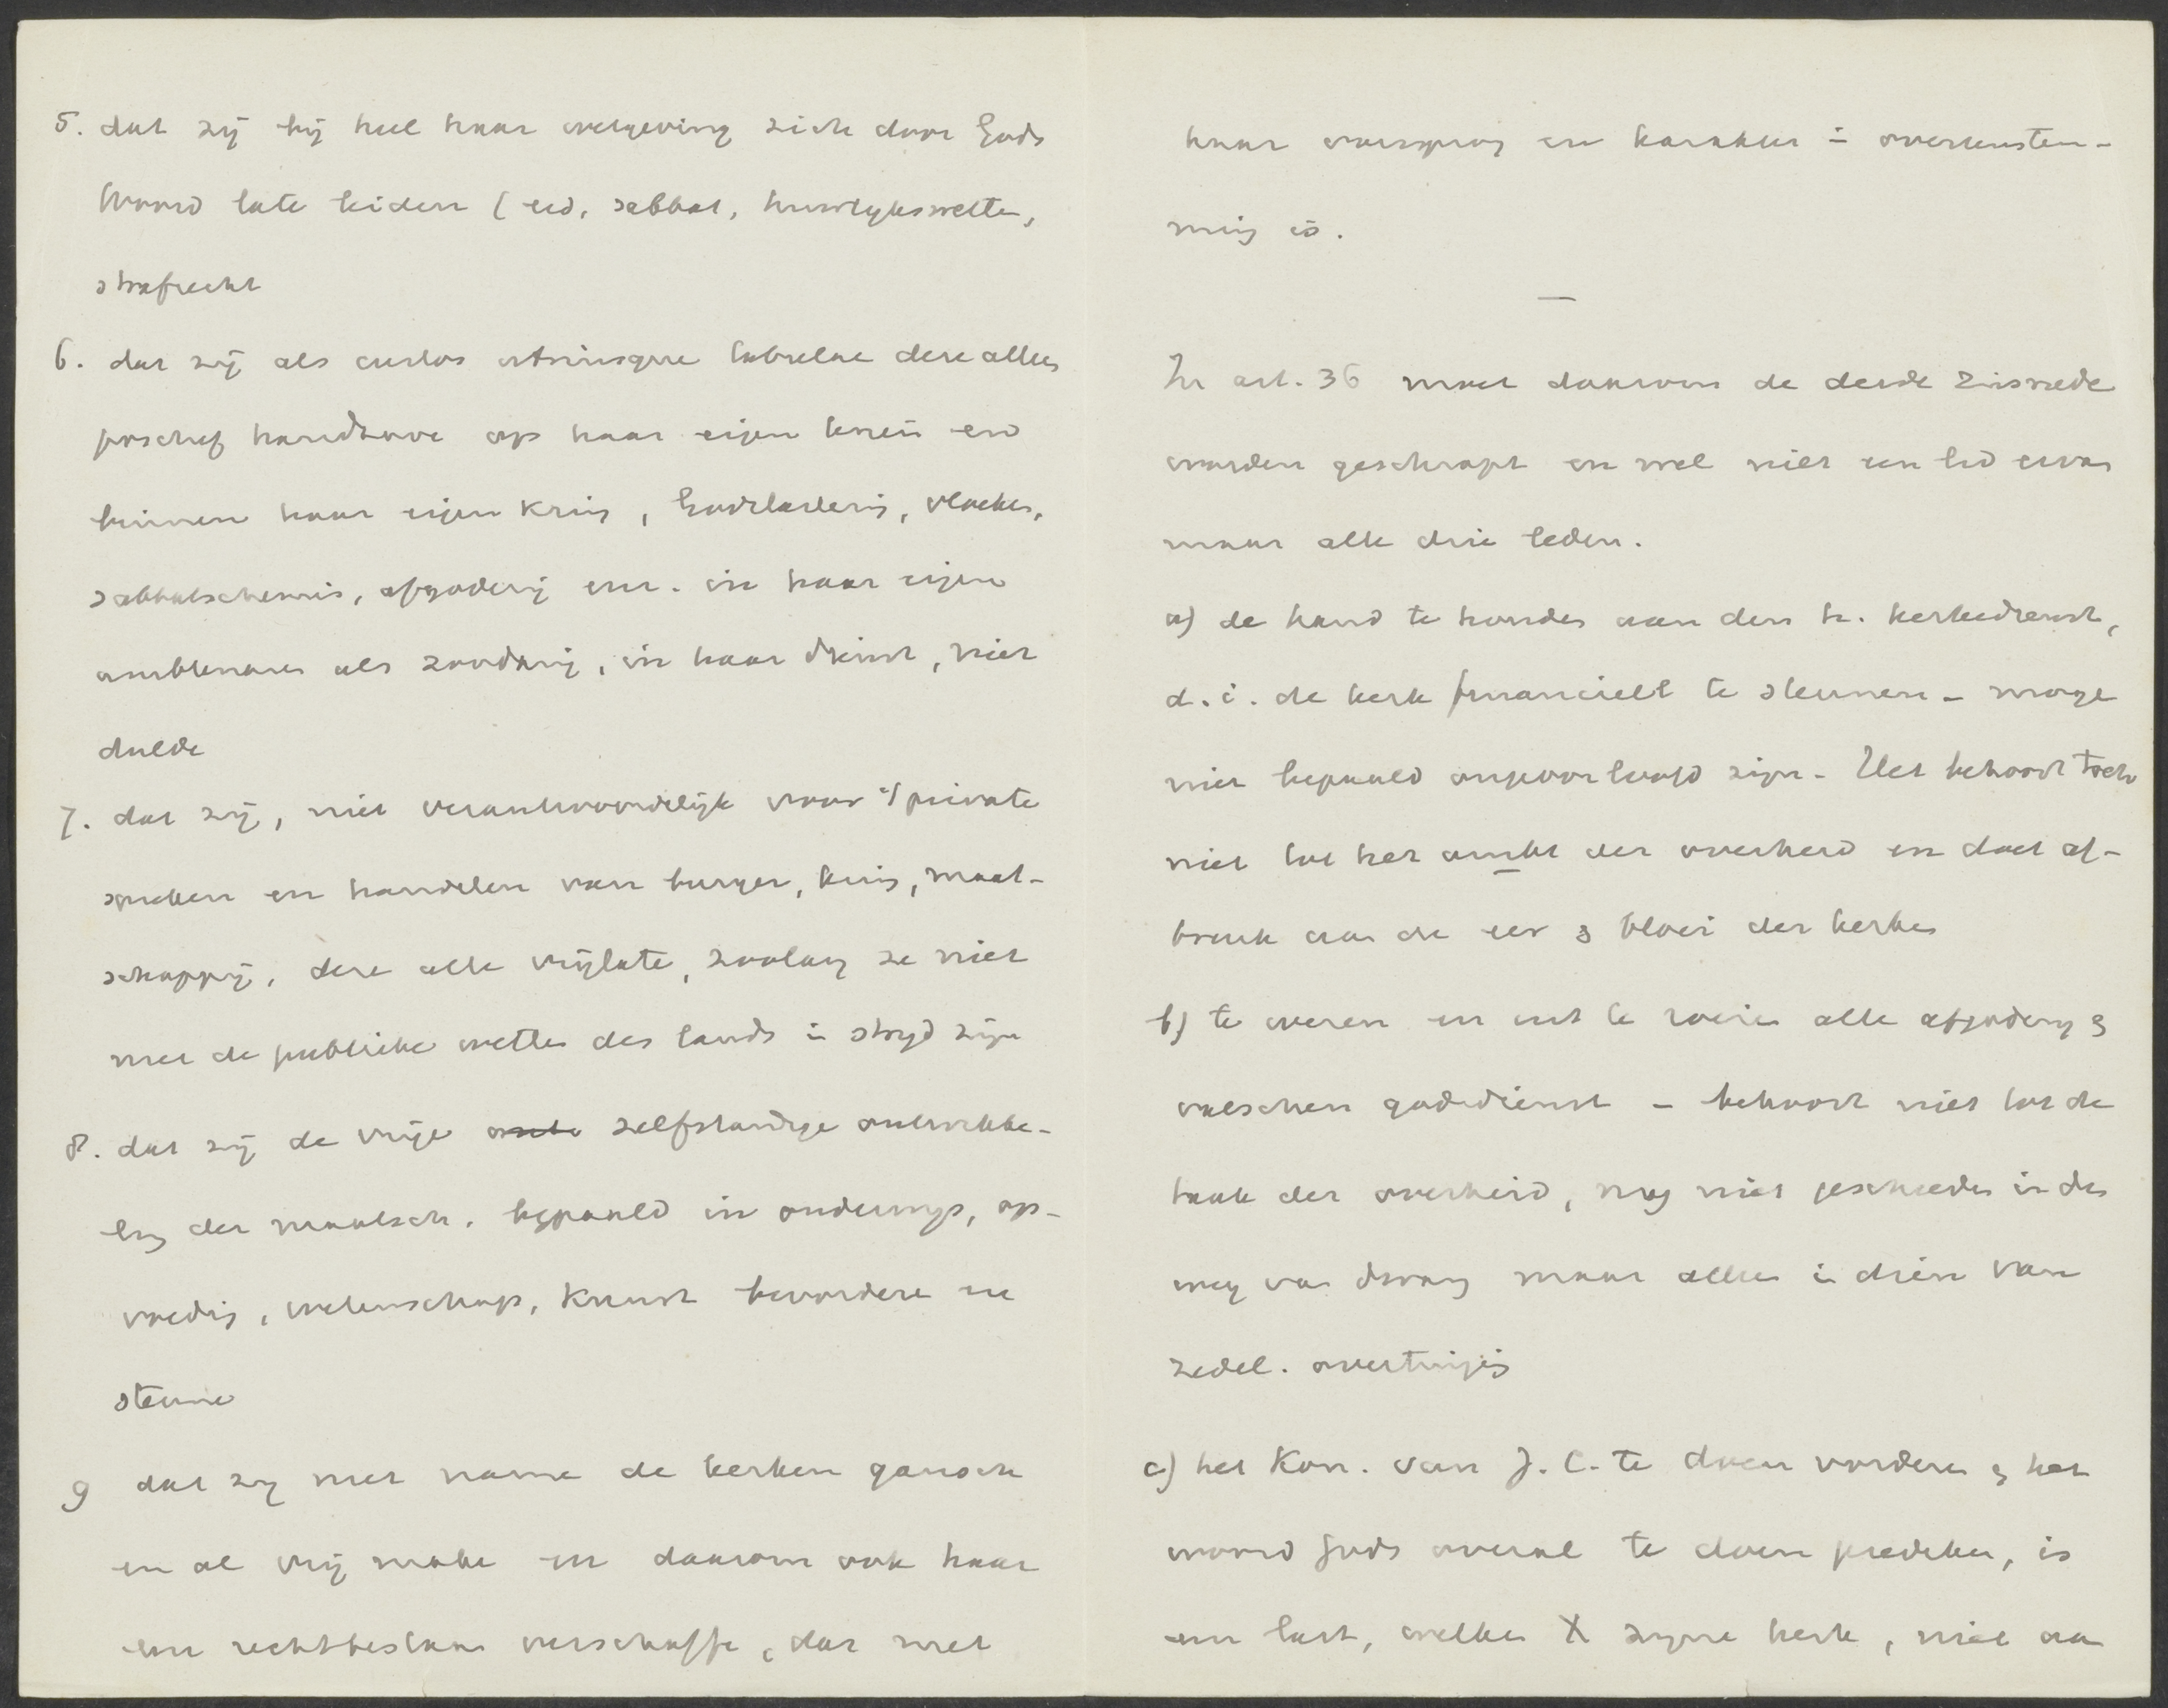 5. dat zij bij heel haar wetgeving zich door Gods
Woord late leiden (eed, sabbat, huwlykswetten,
strafrecht
6. dat zij als custos utriusque tabulae deze alleen
positief handhave op haar eigen terrein en
binnen haar eigen kring, Godslastering, vloeken,
sabbatschennis, afgoderij enz. in haar eigen
ambtenaren als zoodanig, in haar dienst, niet
dulde
7. dat zij, niet verantwoordelijk voor 't private
spreken en handelen van burger, huis, maat-
schappij, deze alle vrijlate, zoolang ze niet
met de publieke wetten des lands in stryd zijn
8. dat zij de vrije zelfstandige ontwikke-
ling der maatsch. bepaald in onderwijs, op-
voeding, wetenschap, Kunst bevordere en
steune
9 dat zij met name de kerken gansch
en al vrij make en daarom ook haar
een rechtsbestaan verschaffe, dat met
haar oorsprong en karakter in overeenstem-
ming is.
—
In art. 36 moet daarom de derde zinsnede
worden geschrapt en wel niet een lid ervan
maar alle drie leden.
a) de hand te houden aan den h. kerkedienst,
d. i. de kerk financieel te steunen - moge
niet bepaald ongeoorloofd zijn - Het behoort toch
niet tot het ambt der overheid en doet af-
breuk aan de eer & bloei der kerken
b) te weren en uit te roeien alle afgodery &
valschen godsdienst - behoort niet tot de
taak der overheid, mag niet geschieden in den
weg van dwang maar alleen in dien van
zedel. overtuiging
c) het Kon. van J. C. te doen vorderen & het
woord Gods overal te doen prediken, is
een last, welken X zijne kerk, niet aan